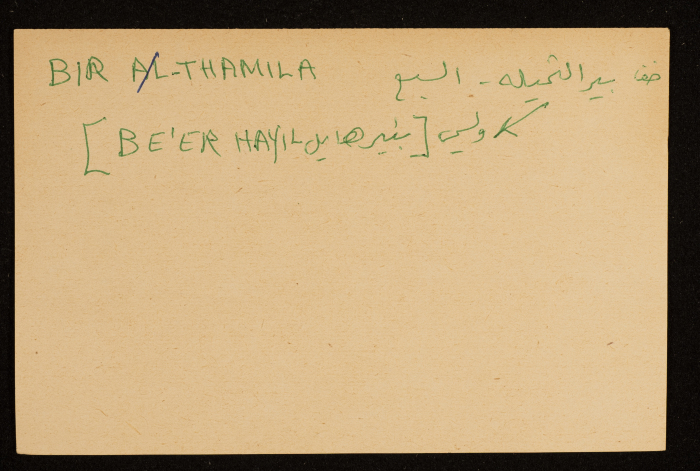 BIR AL-THAMILA بير الثميله - السبع
[BE'ER HAYIL بئير هايل]